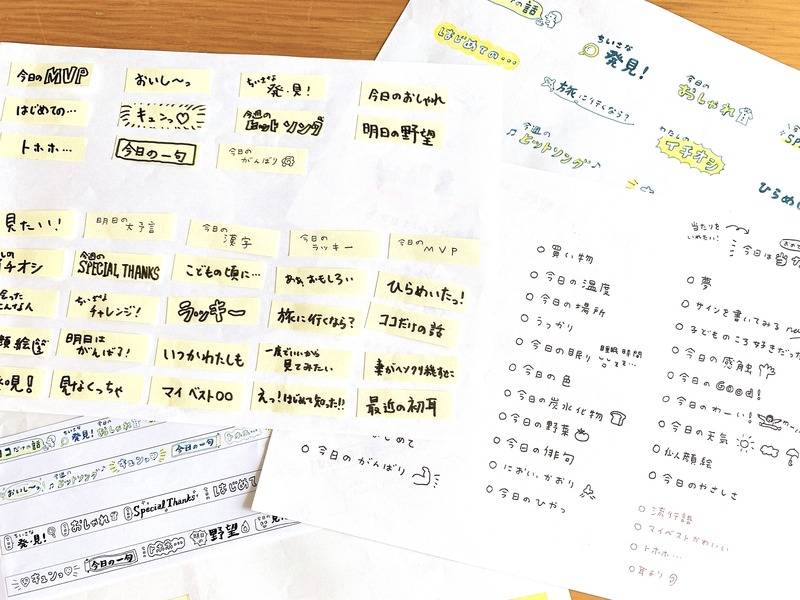 今日のMVP
おいし〜っ
ちいさな
発・見!
今日のおしゃれ
はじめての…
キュンっ♡
今週の
ヒットソング
明日の野望
トホホ…
今日の一句
今日の
がんばり
見たい!
明日の大予言
今日の
漢字
今日の
ラッキー
今日の
MVP
イチオシ
今週の
SPECIAL THANKS
こどもの頃に…
ああ、おもしろい
ひらめいたっ!
ちいさな
チャレンジ!
ラッキー
旅に行くなら?
ココだけの話
明日は
がんばる!
いつかわたしも
一度でいいから
見てみたい
発見!
見なくっちゃ
マイベスト○○
えっ!はじめて知った!!
最近の初耳
の話
はじめての…
ちいさな
発見!
今日の
おしゃれ
旅に行くなら?
今週の
♫ヒットソング♪
わたしの
イチオシ
ひらめ
○買い物
○今日の温度
○今日の場所
○うっかり
○今日の眠り 睡眠時間
○今日の色
○今日の炭水化物
○今日の野菜
○今日の俳句
○におい、かおり
○今日のひやっ
当たりを
いめたい!
今日は
○夢
○サインを書いてみる
○子どものころ好きだった
○今日の感触
○今日のGood!
○今日のわーい!
○今日の天気
○仙人顔絵
○今日のやさしさ
○流行語
○マイベストかわいい
○トホホ…
○耳より
はじめて
○今日のがんばり
ココだけの話
ちいさな
発見!
今日の
おしゃれ
おいし〜っ
今週の
ヒットソング
キュンっ♡
今日の一句
トホホ…
ちいさな
発見!
今日の
おしゃれ
Special Thanks
はじめて
♡キュンっ♡
今日の一句
トホホ…
明日の
野望